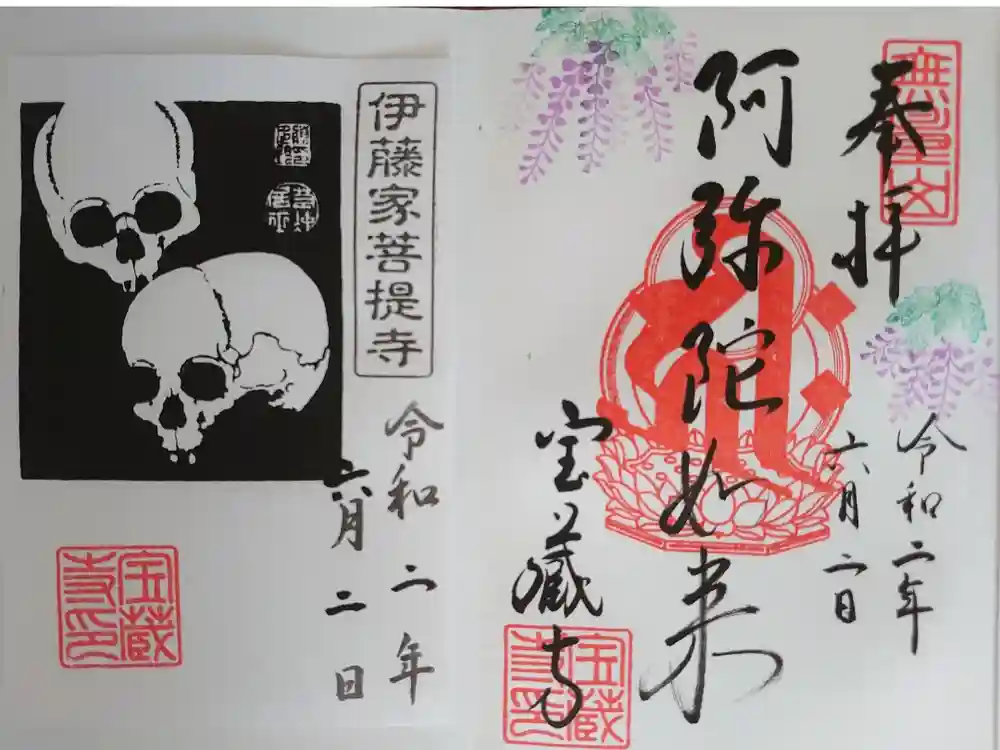 奉拝
阿弥陀如来
令和二年
六月二日
宝蔵寺
宝蔵
寺印
伊藤家菩提寺
令和二年
六月二日
宝蔵
寺印